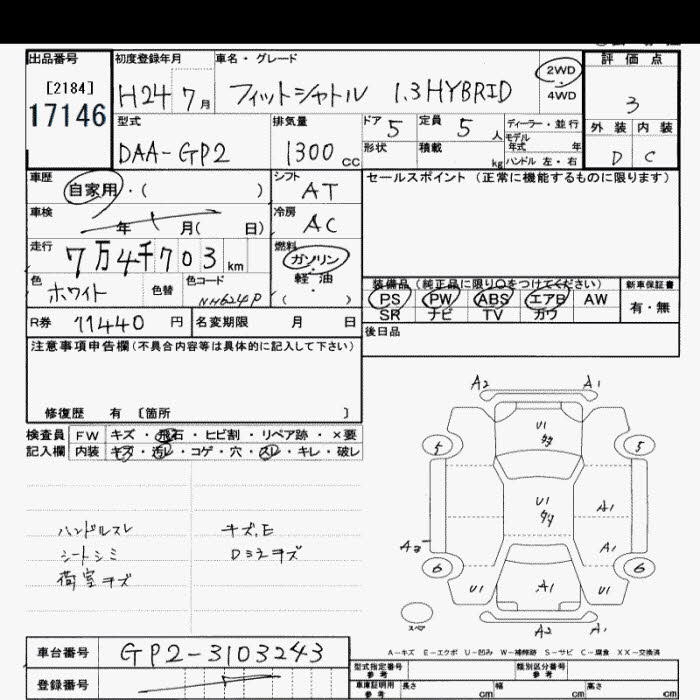 出品番号 初度登録年月 車名・グレード 評価点
[2184] H24 7月 フィットシャトル 1.3HYBRID 2WD・4WD 3
17146
型式 排気量 ドア 5 定員 5人 ディーラー・並行 外装 内装
DAA-GP2 1300cc 形状 積載 kg モデル年式 年 D C
ハンドル 左・右
車歴 自家用・( ) シフト AT セールスポイント (正常に機能するものに限ります)
車検 年 月( 日) 冷房 AC
走行 7万4千703km 燃料 ガソリン・軽油・( )
色 ホワイト 色替 色コード NH624P
装備品 (純正品に限り○をつけてください) 新車保証書
PS PW ABS エアB AW 有・無
SR ナビ TV カワ
R券 11440円 名変期限 月 日 後日品
注意事項申告欄(不具合内容等は具体的に記入して下さい)
修復歴 有 〔箇所 〕
検査員 FW キズ・飛石・ヒビ割・リペア跡・×要
記入欄 内装 キズ・汚レ・コゲ・穴・スレ・キレ・破レ
ハンドルスレ キズ.E
シートシミ Dミラキズ
荷室キズ
A2 A1
U1
5 5
U1
A1
A1
6 6
U1 A1 U1
スペア A2 A1
A-キズ E-エクボ U-凹み W-補修跡 S-サビ C-腐食 XX-交換済
車台番号 GP2-3103243
登録番号
型式指定番号 参考 類別区分番号 参考
車庫証明用 参考 長さ cm 幅 cm 高さ cm